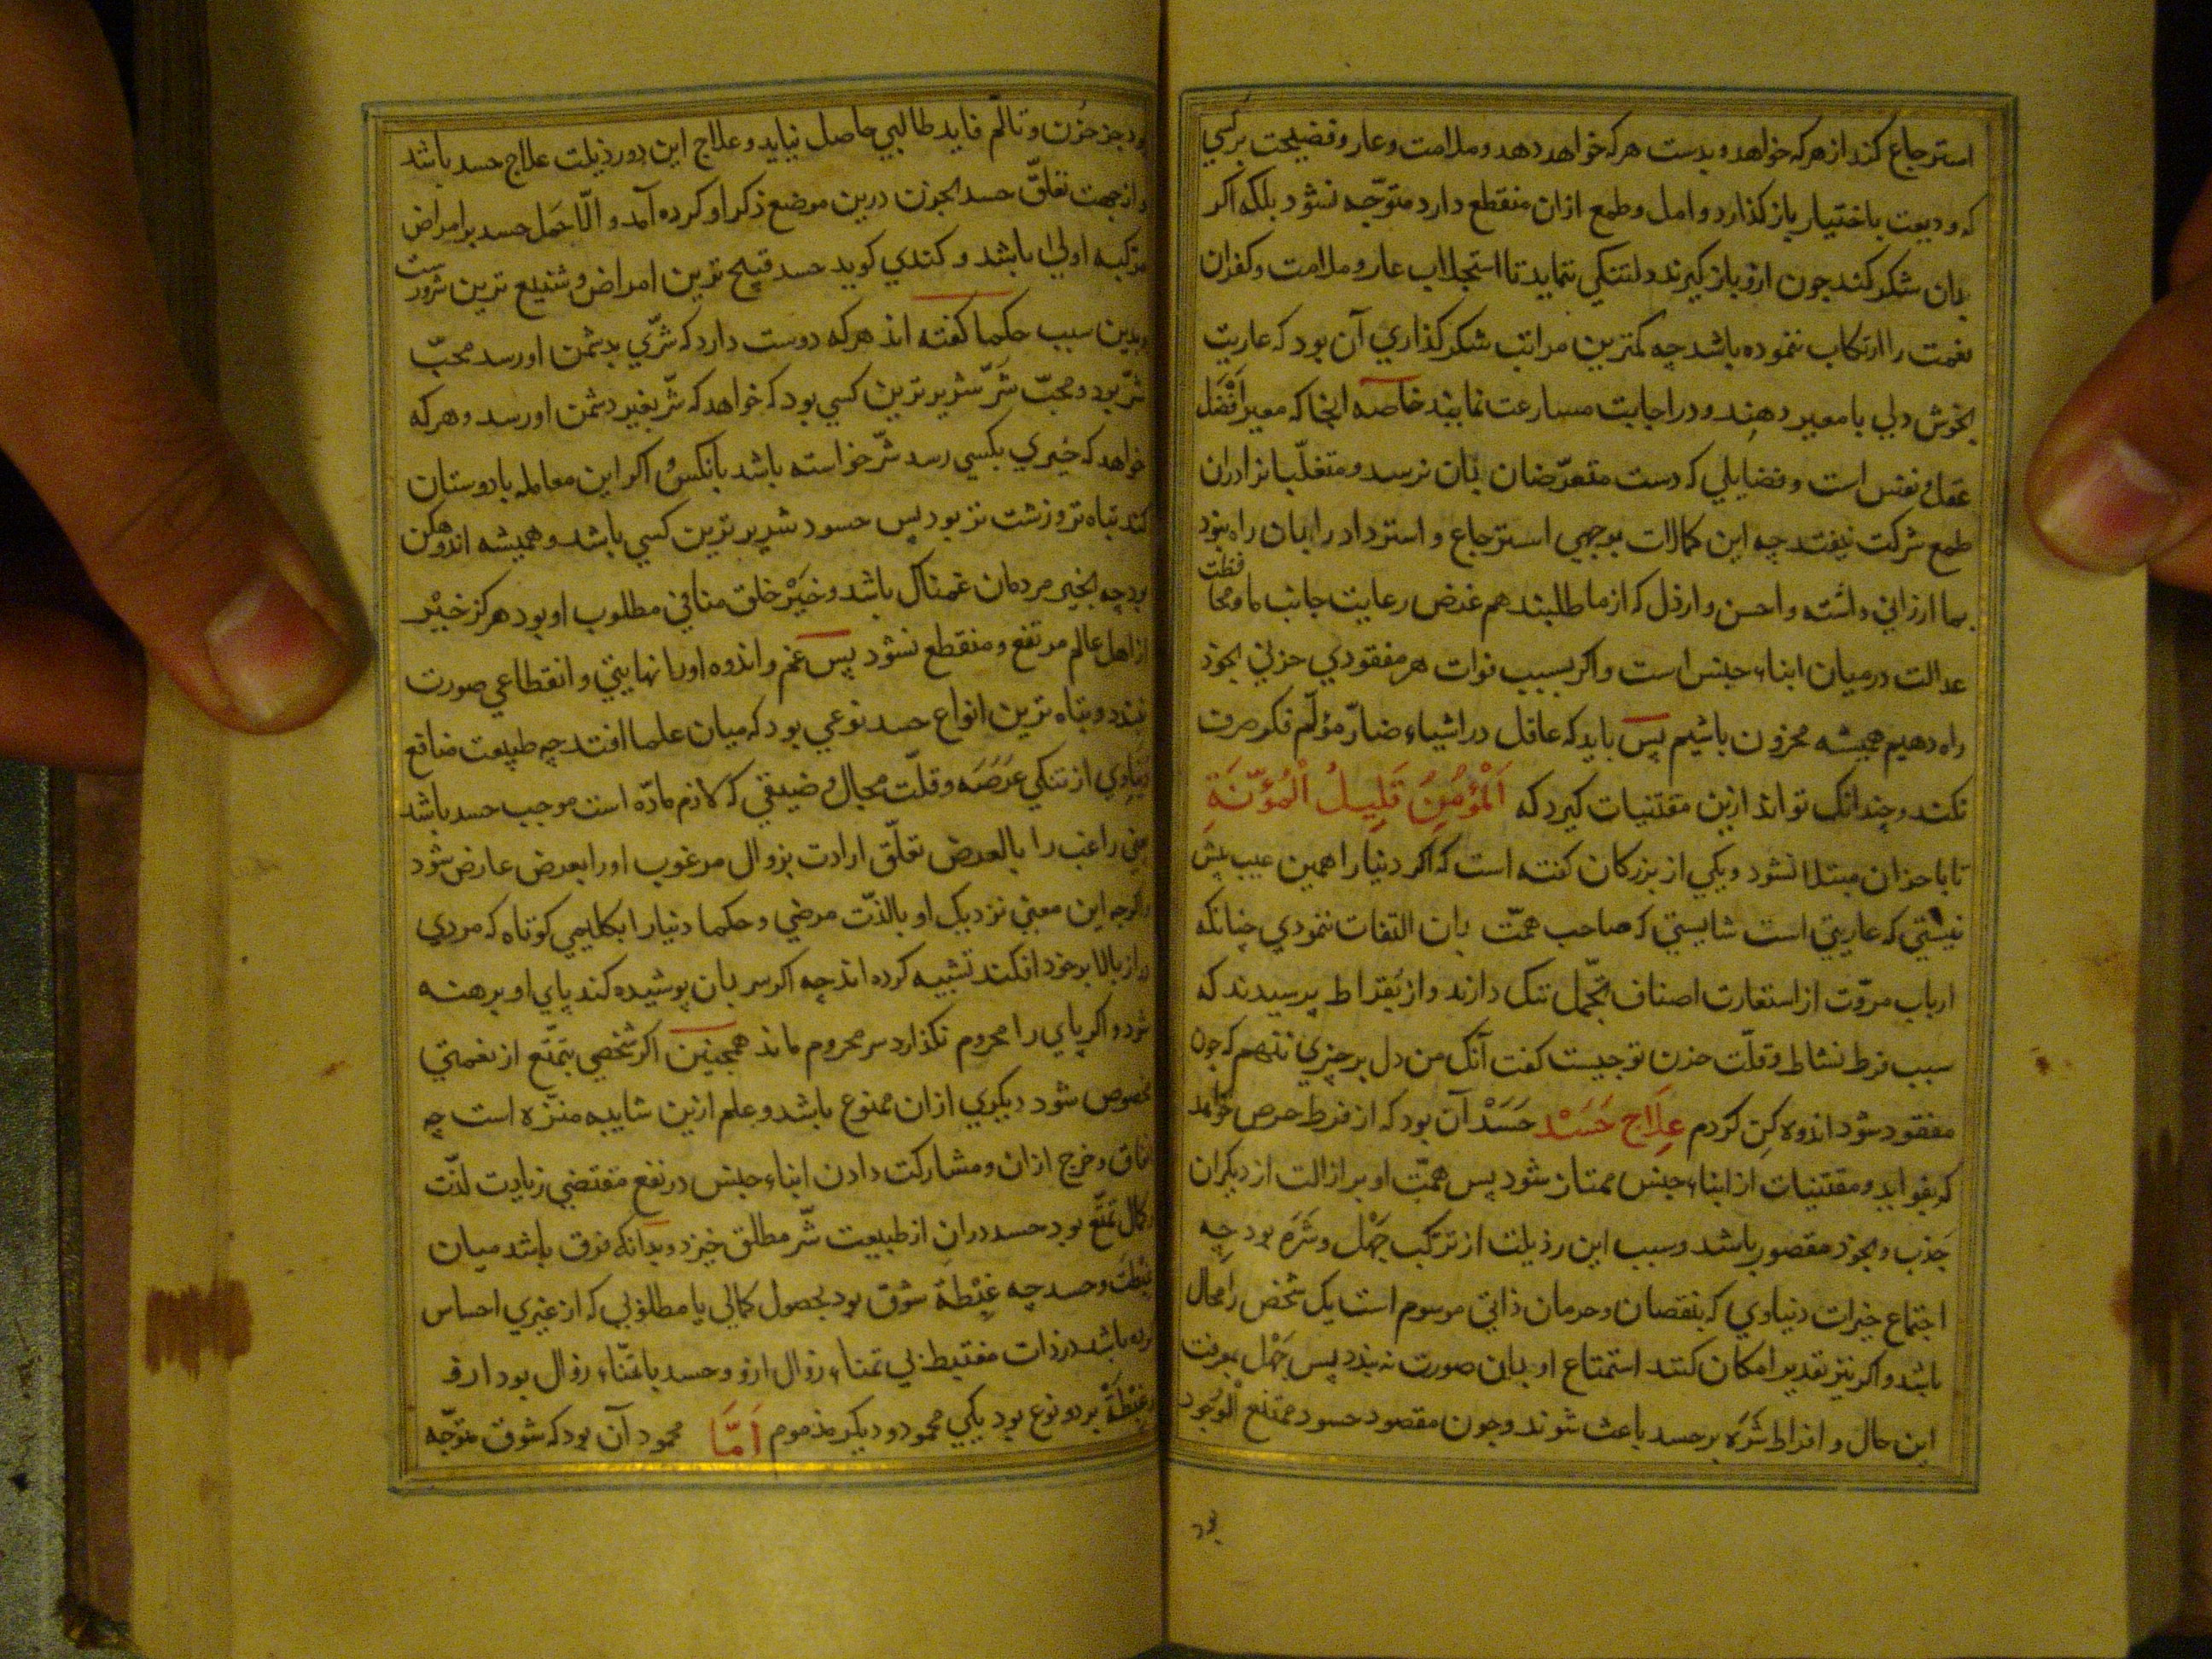 استرجاع کند از هرکه خواهد و بدست هرکه خواهد دهد و ملامت و عار و فضیحت بر کسی
که ودیعت باختیار باز کذارد و امل و طمع ازان منقطع دارد متوجّه نشود بلکه اکر
بدان شکر کند چون ازو باز کیرند دلتنکی ننماید تا استجلاب عار و ملامت و کفران
نعمت را ارتکاب ننموده باشد چه کمترین مراتب شکر کذاری آن بود که عاریت
بخوش دلی با معیر دهند و در اجابت مسارعت نمایند خاصه انجا که معیر افضل
عقل و نفس است و فضایلی که دست متعرّضان بان نرسد و متغلّبانرا دران
طمع شرکت نیفتد چه این کمالات بوجهی استرجاع و استرداد را بان راه نبود
بما ارزانی داشته و احسن و ارذل که از ما طلبند هم غرض رعایت جانب ما و محافظت
عدالت در میان ابناء جنس است و اکر بسبب فوات هر مفقودی حزنی بخوذ
راه دهیم همیشه محزون باشیم پس باید که عاقل در اشیاء ضارّ مؤلم فکر صرف
نکند و چندانک تواند ازین مقتنیات کیرد که اَلْمُؤْمِنُ قَلِیلُ الْمُؤْنَةِ
تا باحزان مبتلا نشود و یکی از بزرکان کفته است که اکر دنیا را همین عیب بیش
نیستی که عاریتی است شایستی که صاحب همّت بان التفات ننمودی چنانکه
ارباب مروّت از استعارت اصناف تجمّل ننک دارند و از بقراط پرسیدند که
سبب فرط نشاط و قلّت حزن تو چیست کفت آنک من دل بر چیزی ننهم که چون
مفقود شود اندوه کن کردم علاج حَسَدْ حَسَدْ آن بود که از فرط حرص خواهد
که بفواید و مقتنیات از ابناء جنس ممتاز شود پس همّت او بر ازالت از دیکران
جذب و بخوذ مقصور باشد و سبب این رذیلت از ترکب جهل و شره بود چه
اجتماع خیرات دنیاوی که بنقصان و حرمان ذاتی موسوم است یک شخص را محال
باشد و اکر نیز تقدیر امکان کنند استمتاع او بدان صورت نه بندد پس جهل بمعرفت
این حال و افراط شره بر حسد باعث شوند و چون مقصود حسود ممتنع الوجود
بود جز حزن و تالّم فاید طالبی حاصل نیاید و علاج این دو رذیلت علاج حسد باشد
و از جهت تعلّق حسد بحزن درین موضع ذکر او کرده آمد و الّا حمل حسد بر امراض
مرکبه اولی باشد و کندی کوید حسد قبیح ترین امراض و شنیع ترین شرورست
و بدین سبب حکما کفته اند هرکه دوست دارد که شرّی بدشمن او رسد محبّ
شرّ بود و محبّ شرّ شریر ترین کسی بود که خواهد که شرّ بغیر دشمن او رسد و هرکه
خواهد که خیری بکسی رسد شرّ خواسته باشد بانکس و اکر این معامله با دوستان
کند تباه تر و زشت تر بود پس حسود شریر ترین کسی باشد و همیشه اندوهکن
بود چه بخیر مردمان غمناک باشد و خیر خلق منافی مطلوب او بود هرکز خیر
از اهل عالم مرتفع و منقطع نشود پس غم و اندوه او را نهایتی و انقطاعی صورت
نبندد و تباه ترین انواع حسد نوعی بود که میان علما افتد چه طبیعت منافع
دنیاوی از تنکی عرصه و قلّت مجال و ضیقی که لازم مادّه است موجب حسد باشد
یعنی راغب را بالعرض تعلّق ارادت بزوال مرغوب او را بعرض عارض شود
و اکرچه این معنی نزدیک او بالذّت مرضی و حکما دنیا را بکلیمی کوتاه که مردی
دراز بالا بر خود افکند تشبیه کرده اند چه اکر سر بان پوشیده کند پای او برهنه
شود و اکر پای را محروم نکذارد سر محروم ماند همچنین اکر شخصی بتمتّع از نعمتی
مخصوص شود دیکری ازان ممنوع باشد و علم ازین شایبه منزّه است چه
انفاق و خرج ازان و مشارکت دادن ابناء جنس در نفع مقتضی زیادت لذّت
و کمال تمتّع بود حسد دران از طبیعت شرّ مطلق خیزد و بدانکه فرق باشد میان
غبطت و حسد چه غبطة شوق بود بحصول کمالی یا مطلوبی که از غیری احساس
کرده باشد در ذات مغتبط بی تمناء زوال ازو و حسد با تمنّاء زوال بود ازو
و غبطة بر دو نوع بود یکی محمود و دیکر مذموم اَمَّا محمود آن بود که شوق متوجّه